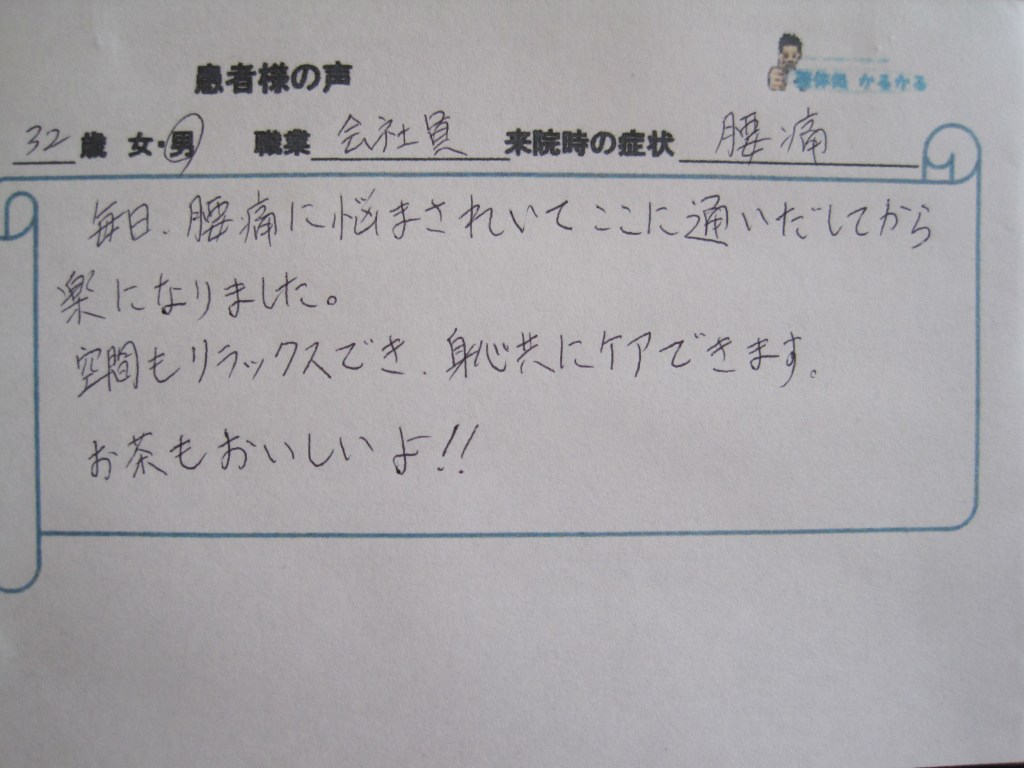 患者様の声
整体処 かるかる
32 歳 女・男 職業 会社員 来院時の症状 腰痛
毎日、腰痛に悩まされいてここに通いだしてから
楽になりました。
空間もリラックスでき、身心共にケアできます。
お茶もおいしいよ!!